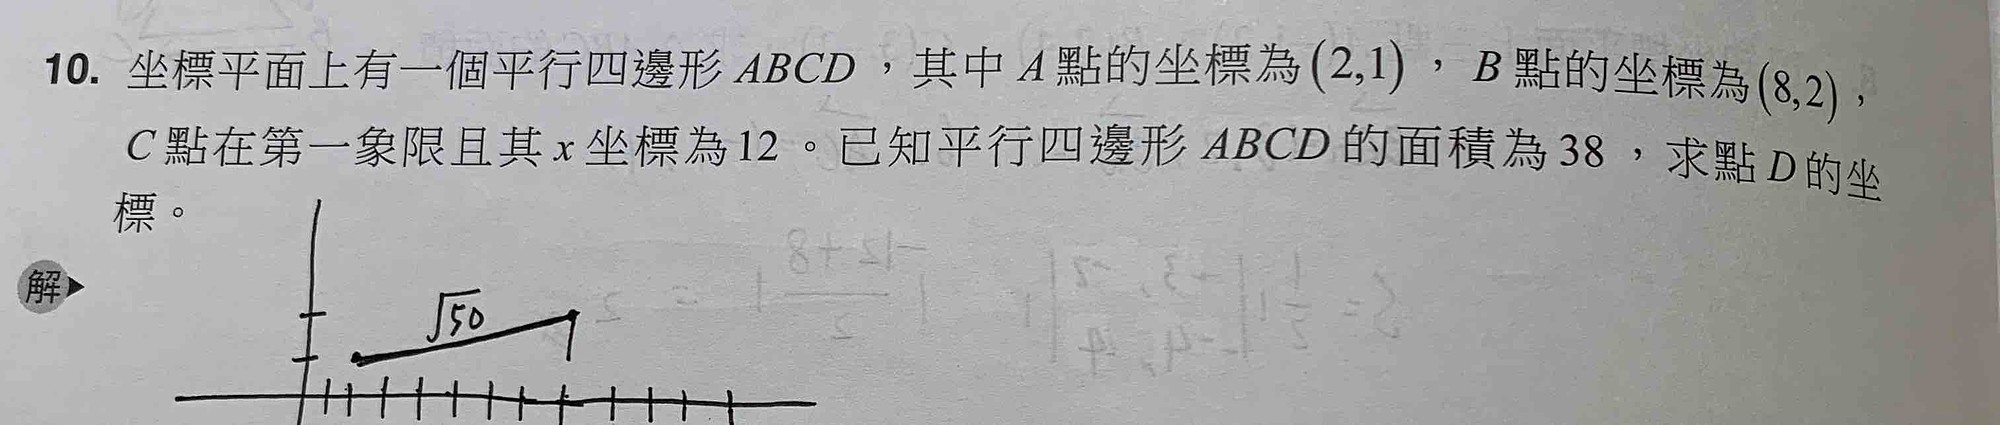 10. 坐標平面上有一個平行四邊形 ABCD，其中 A 點的坐標為 (2,1)， B 點的坐標為 (8,2)，
C 點在第一象限且其 x 坐標為 12。已知平行四邊形 ABCD 的面積為 38，求點 D 的坐
標。
解
√50